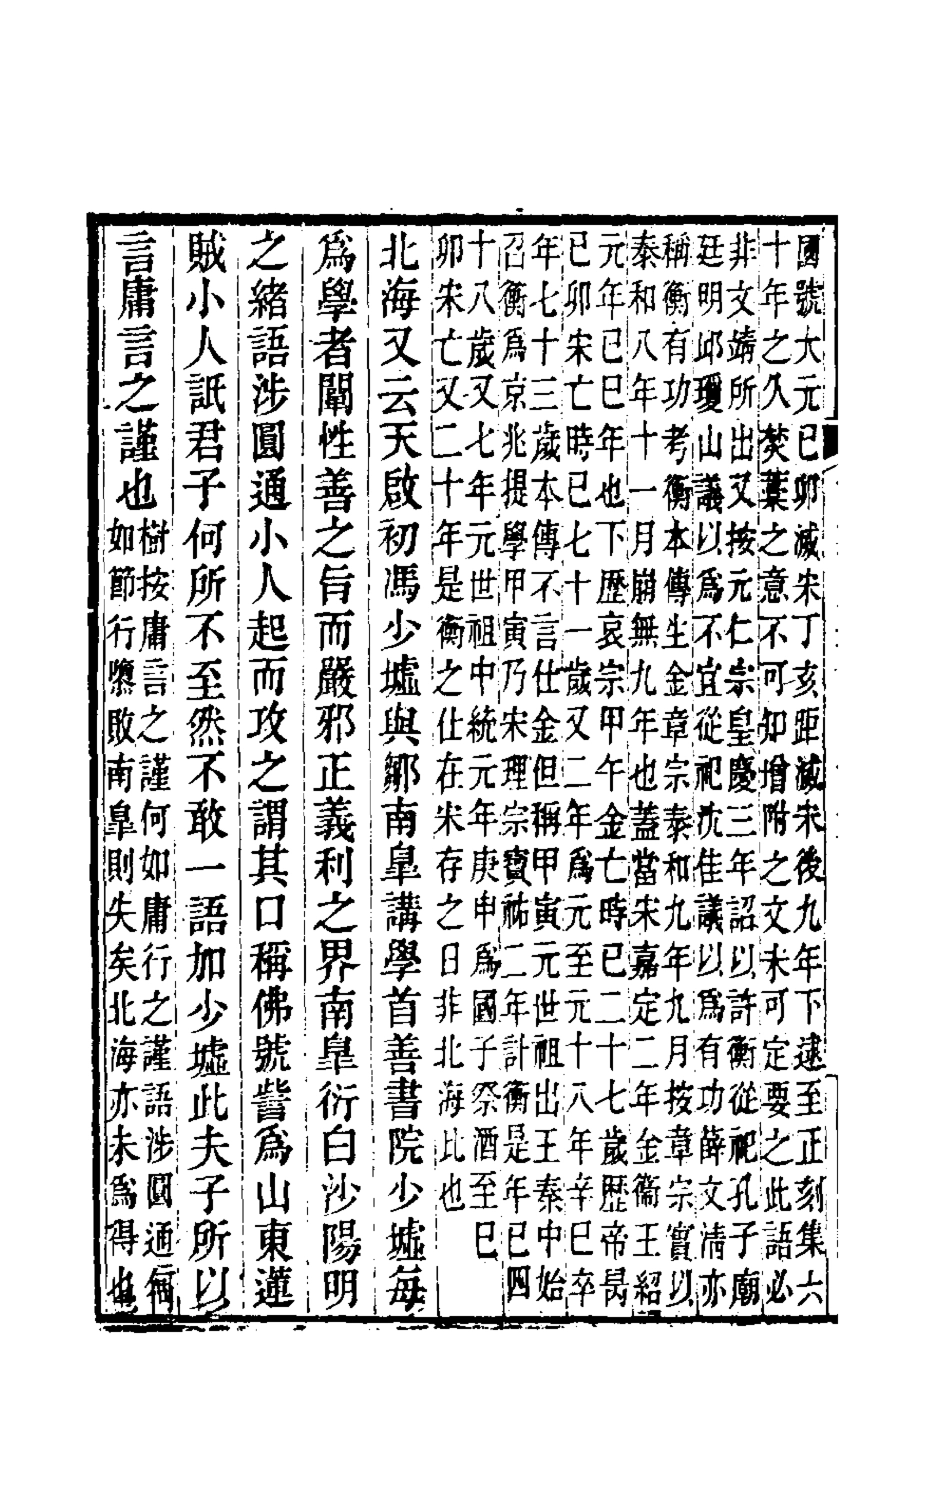 國號大元已卯滅宋丁亥距滅宋後九年下逮至正刻集六
十年之久焚藁之意不可知增附之文未可定要之此語必
非文靖所出又按元仁宗皇慶三年詔以許衡從祀孔子廟
廷明邱瓊山議以爲不宜從祀沈佳議以爲有功薛文淸亦
稱衡有功考衡本傳生金章宗泰和九年九月按章宗實以
泰和八年十一月崩無九年也蓋當宋嘉定二年金衞王紹
元年已巳年也下歷哀宗甲午金亡時已二十七歲歷帝昺
已卯宋亡時已七十一歲又二年爲元至元十八年辛巳卒
年七十三歲本傳不言仕金但稱甲寅元世祖出王秦中始
召衡爲京兆提學甲寅乃宋理宗寶祐二年計衡是年已四
十八歲又七年元世祖中統元年庚申爲國子祭酒至巳
卯宋亡又二十年是衡之仕在宋存之日非北海比也
北海又云天啟初馮少墟與鄒南臯講學首善書院少墟每
爲學者闡性善之旨而嚴邪正義利之界南臯衍白沙陽明
之緖語涉圓通小人起而攻之謂其口稱佛號訾爲山東蓮
賊小人詆君子何所不至然不敢一語加少墟此夫子所以
言庸言之謹也
樹按庸言之謹何如庸行之謹語涉圓通何
如節行隳敗南臯則失矣北海亦未爲得也